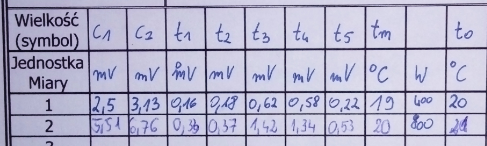 Wielkość (symbol) C1 C2 t1 t2 t3 t4 t5 tm t0
Jednostka Miary mV mV mV mV mV mV mV °C W °C
1 2,5 3,13 0,16 0,18 0,62 0,58 0,22 19 400 20
2 5,51 6,76 0,37 1,42 1,34 0,53 20 800